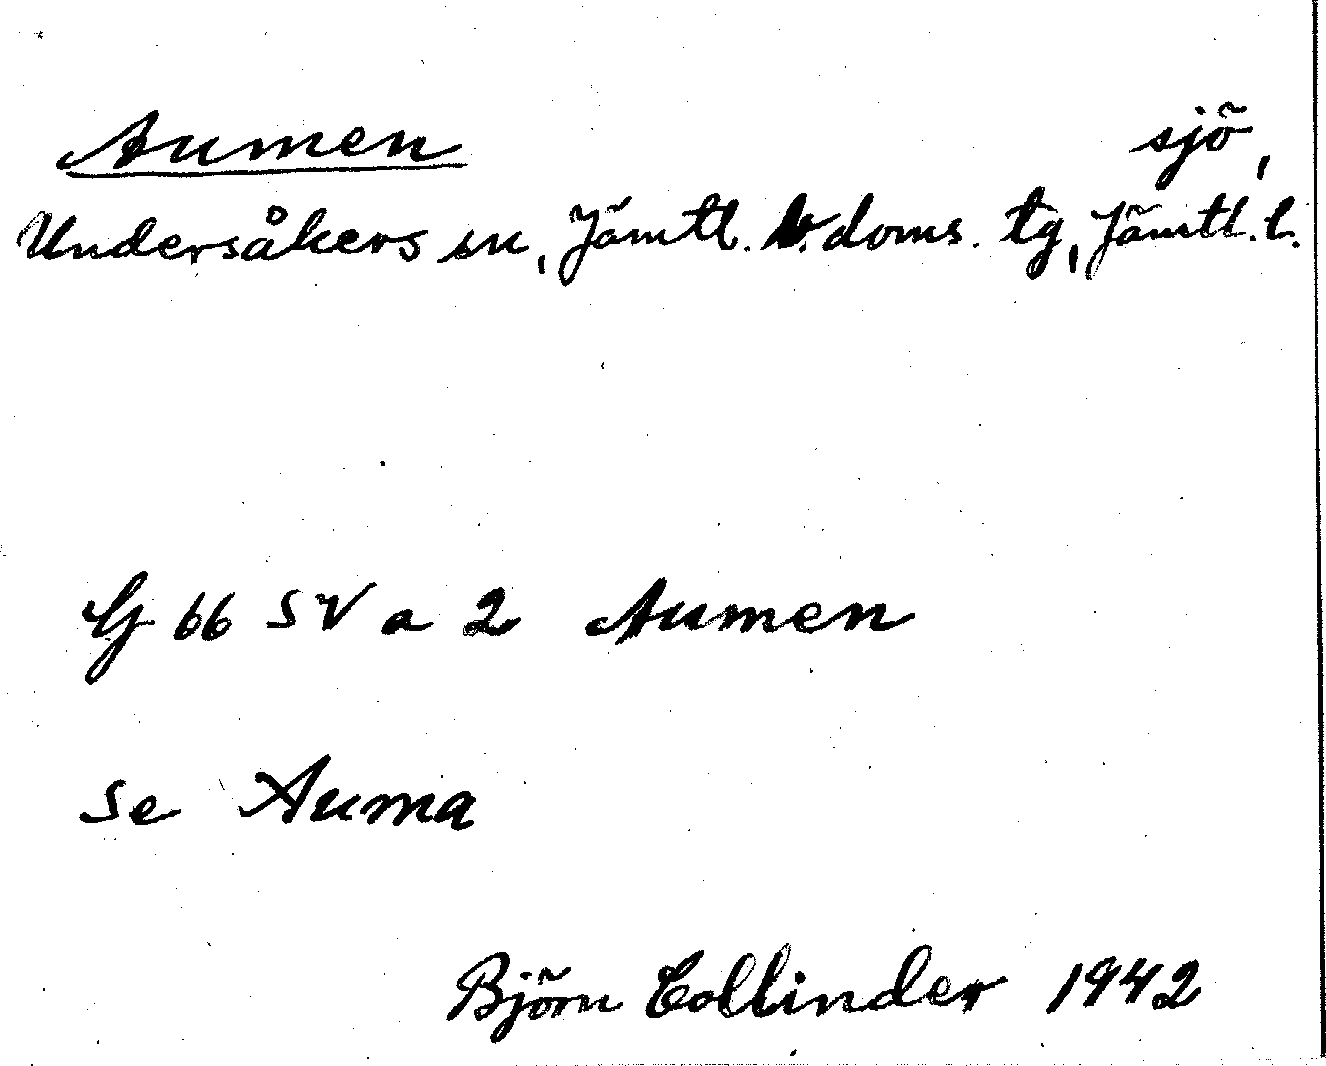 Aumen sjö,
Undersåkers sn, Jämtl. v. doms. tg, Jämtl. l.
G 66 SV a 2 Aumen
se Auma
Björn Collinder 1942